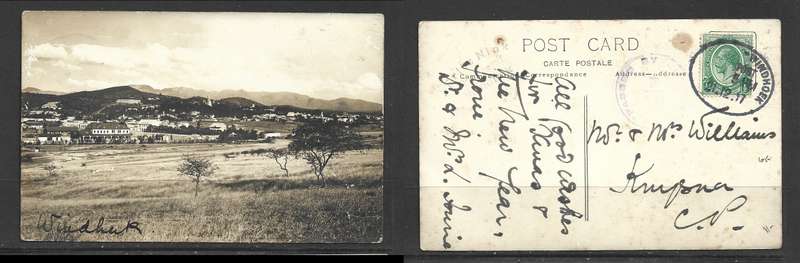 Windhuk
POST CARD
CARTE POSTALE
Correspondence
Address
PASSED BY
WINDHOEK
All Good wishes
for Xmas &
the New Year,
from
Dr. & Mrs L.
Mr. & Mrs Williams
Knysna
C.P.